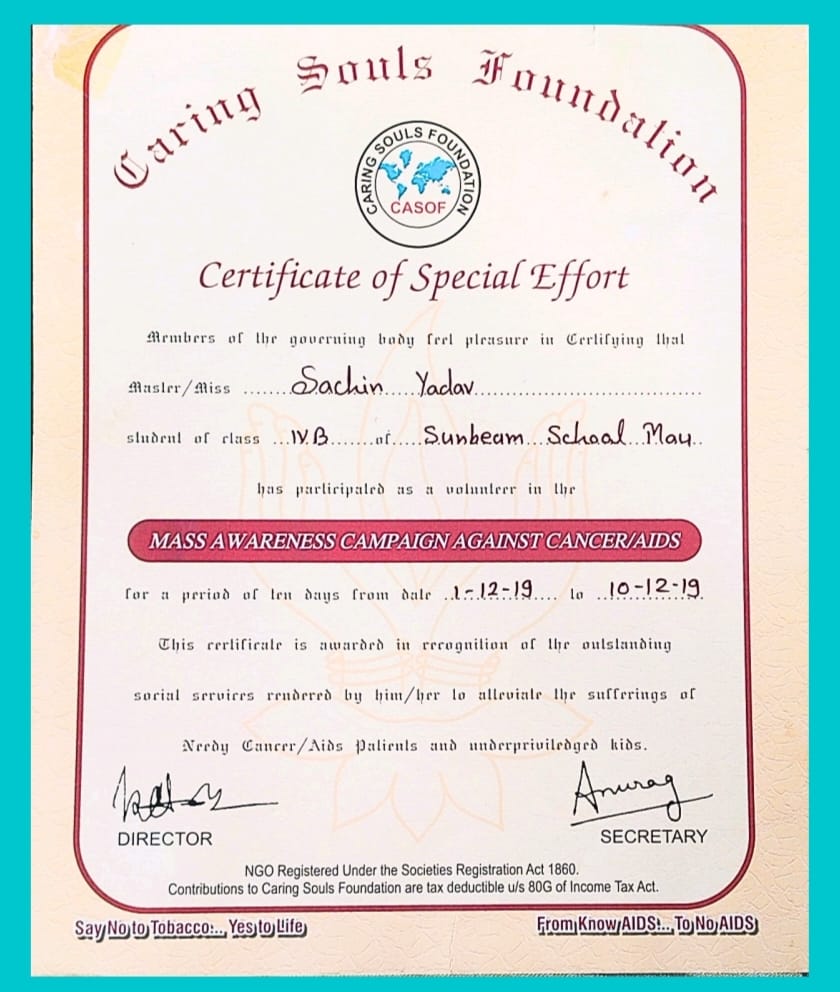 Caring Souls Foundation
CARING SOULS FOUNDATION
CASOF
Certificate of Special Effort
Members of the governing body feel pleasure in Certifying that
Master/Miss .......Sachin....Yadav..................................
student of class ...IV.B.......of.....Sunbeam...School...Mau..
has participated as a volunteer in the
MASS AWARENESS CAMPAIGN AGAINST CANCER/AIDS
for a period of ten days from date ..1-12-19.... to ..10-12-19.
This certificate is awarded in recognition of the outstanding
social services rendered by him/her to alleviate the sufferings of
Needy Cancer/Aids Patients and underpriviledged kids.
Anurag
DIRECTOR
SECRETARY
NGO Registered Under the Societies Registration Act 1860.
Contributions to Caring Souls Foundation are tax deductible u/s 80G of Income Tax Act.
Say No to Tobacco:.. Yes to Life
From Know AIDS!... To No AIDS